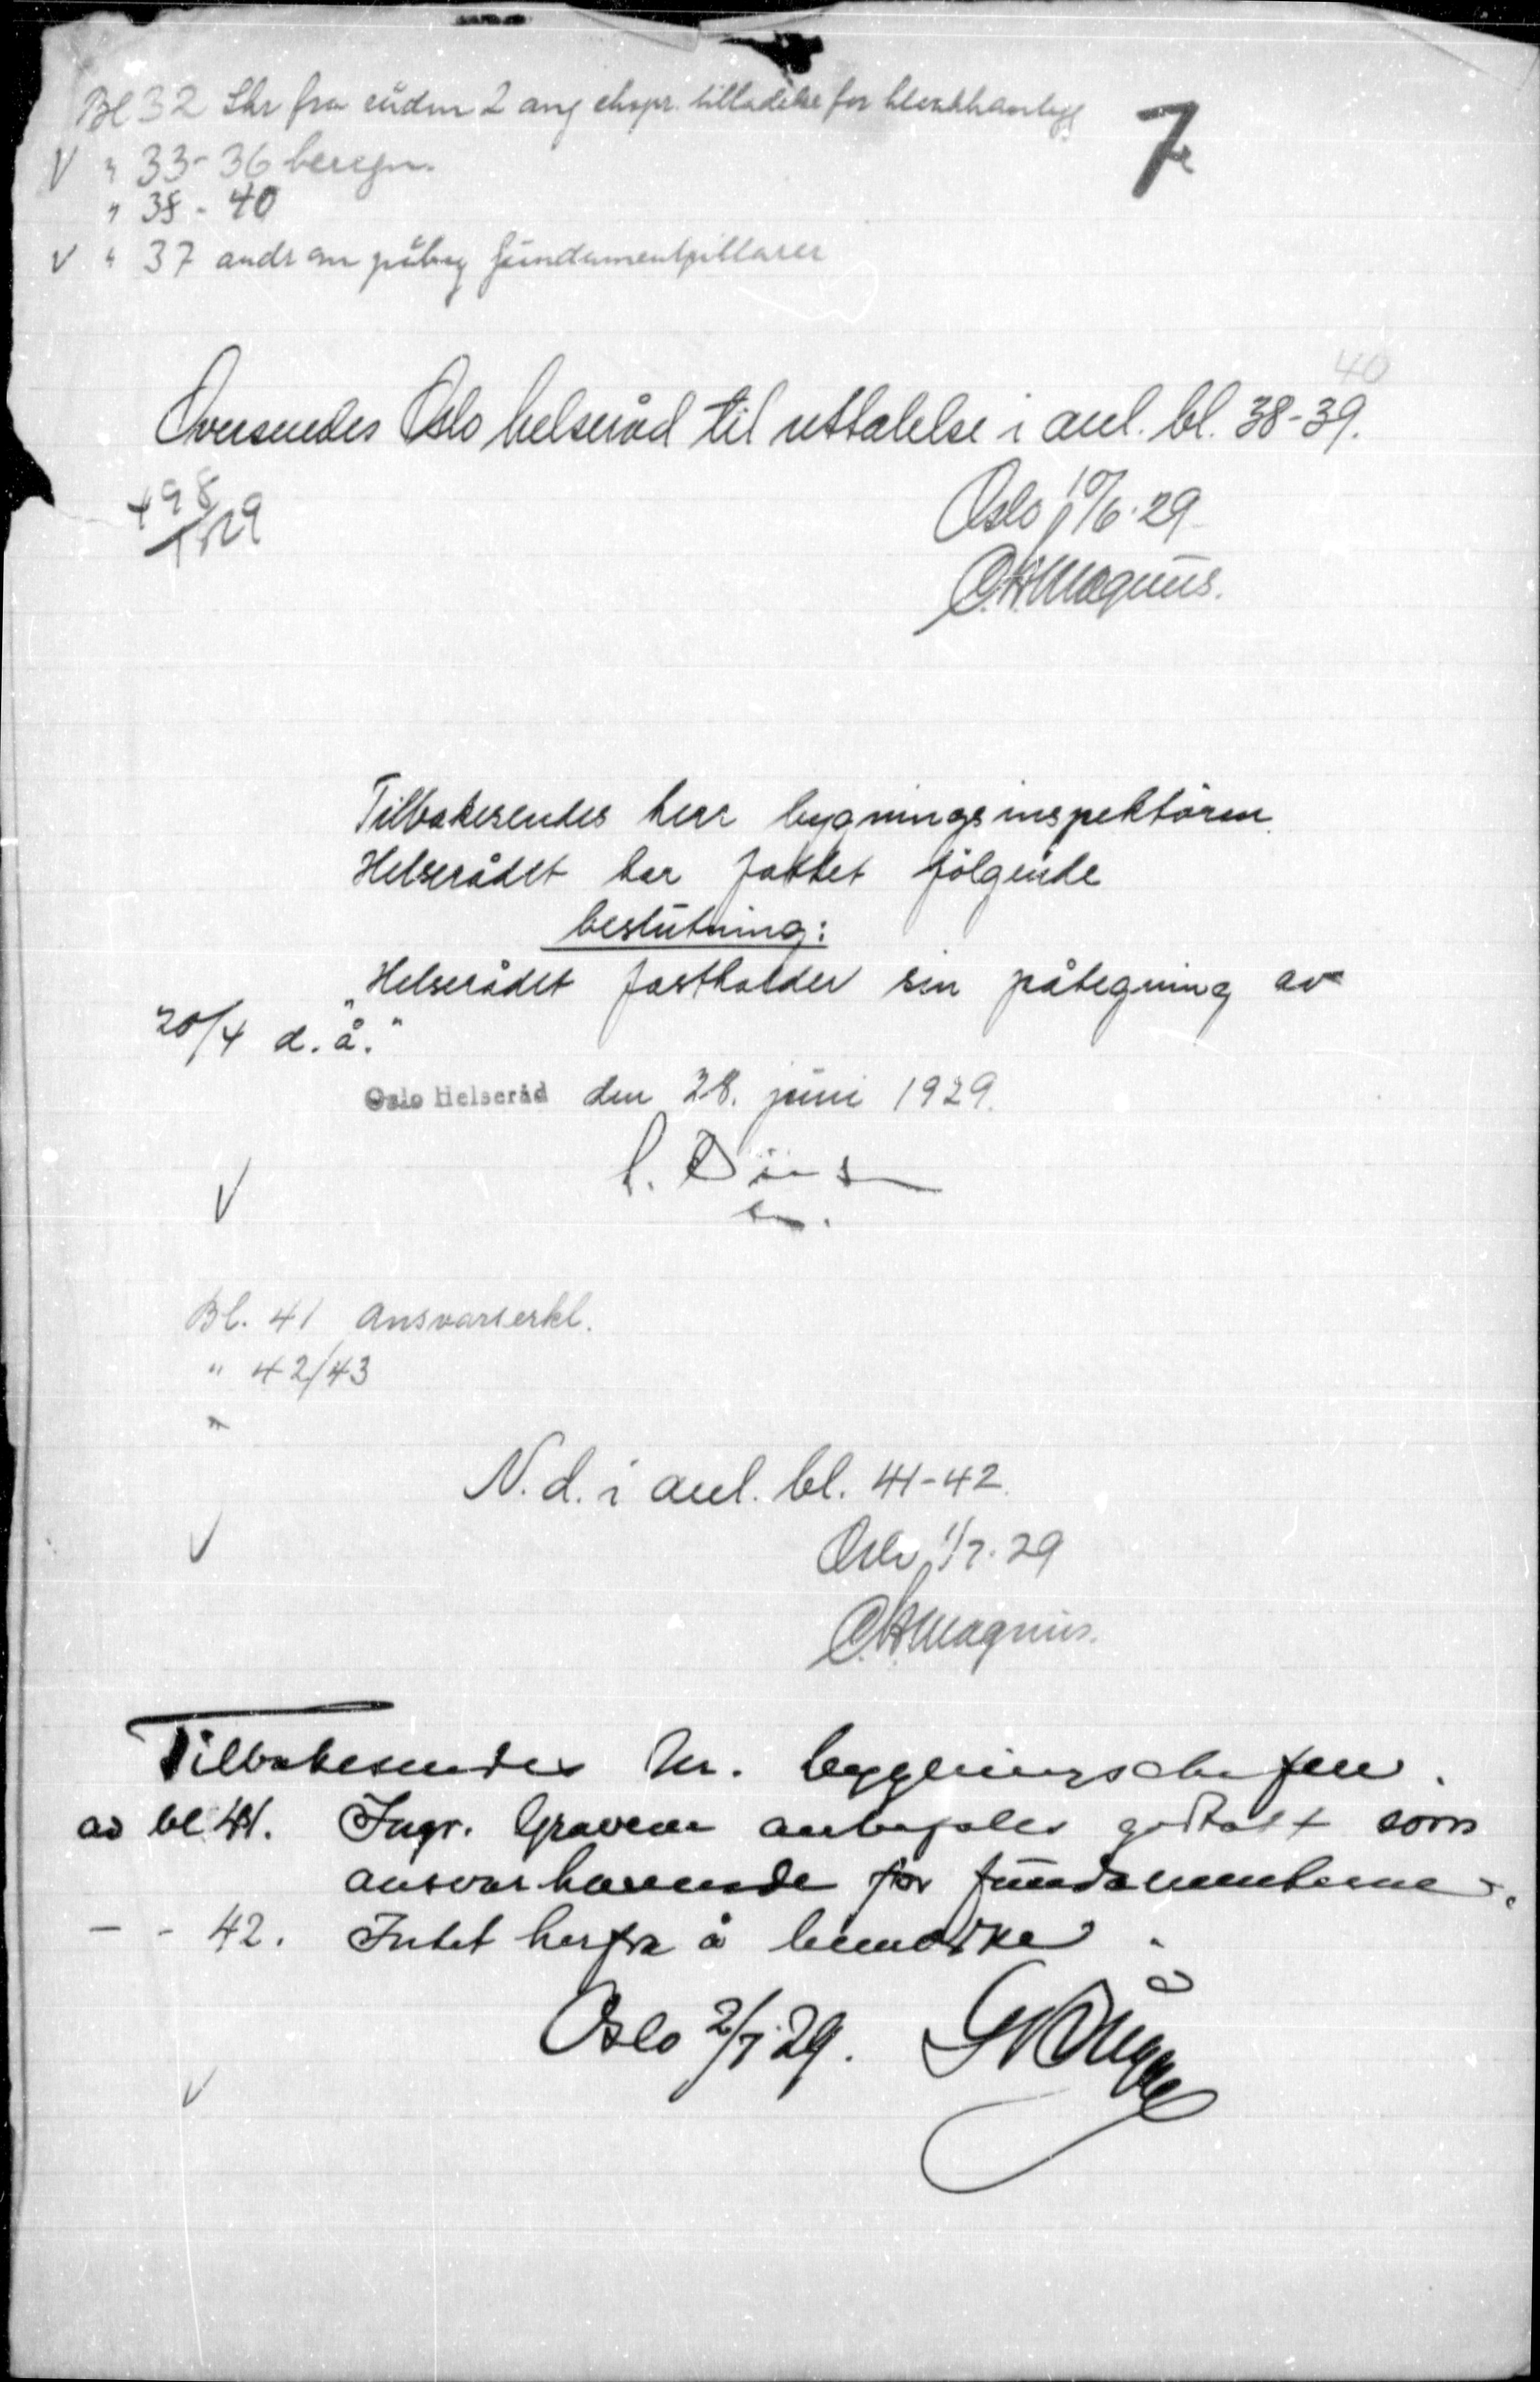 Bl 32 Skr fra råden 2 ang ekspr. tilladelse for
V " 33-36 beregn.
" 38-40
V " 37 andr om påbeg fundamentpillarer
7
40
Oversendes Oslo helseråd til uttalelse i anl. bl. 38-39.
498
1929
Oslo 10/6.29
C.H.Magnus.
Tilbakesendes herr bygningsinspektören.
Helserådet har fattet fölgende
beslutning:
"Helserådet fastholder sin påtegning av
20/4 d.å."
Oslo Helseråd den 28. juni 1929.
V
Bl. 41 Ansvarserkl.
" 42/43
"
N.d. i anl. bl. 41-42.
V
Oslo 1/7.29
C.H.Magnus.
Tilbakesendes hr. bygningschefen.
ad bl 41. Ingr. Graven anbefales godtatt som
ansvarhavende for fundamenterne.
- - 42. Intet herfra å bemærke.
Oslo 2/7.29.
V